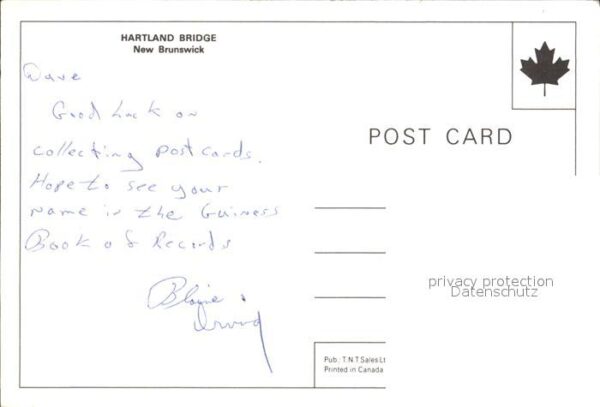 HARTLAND BRIDGE
New Brunswick
Dave
Good Luck on
collecting post cards.
Hope to see your
name in the Guiness
Book of Records
Blaine
POST CARD
privacy protection
Datenschutz
Pub.: T.N.T Sales Lt
Printed in Canada